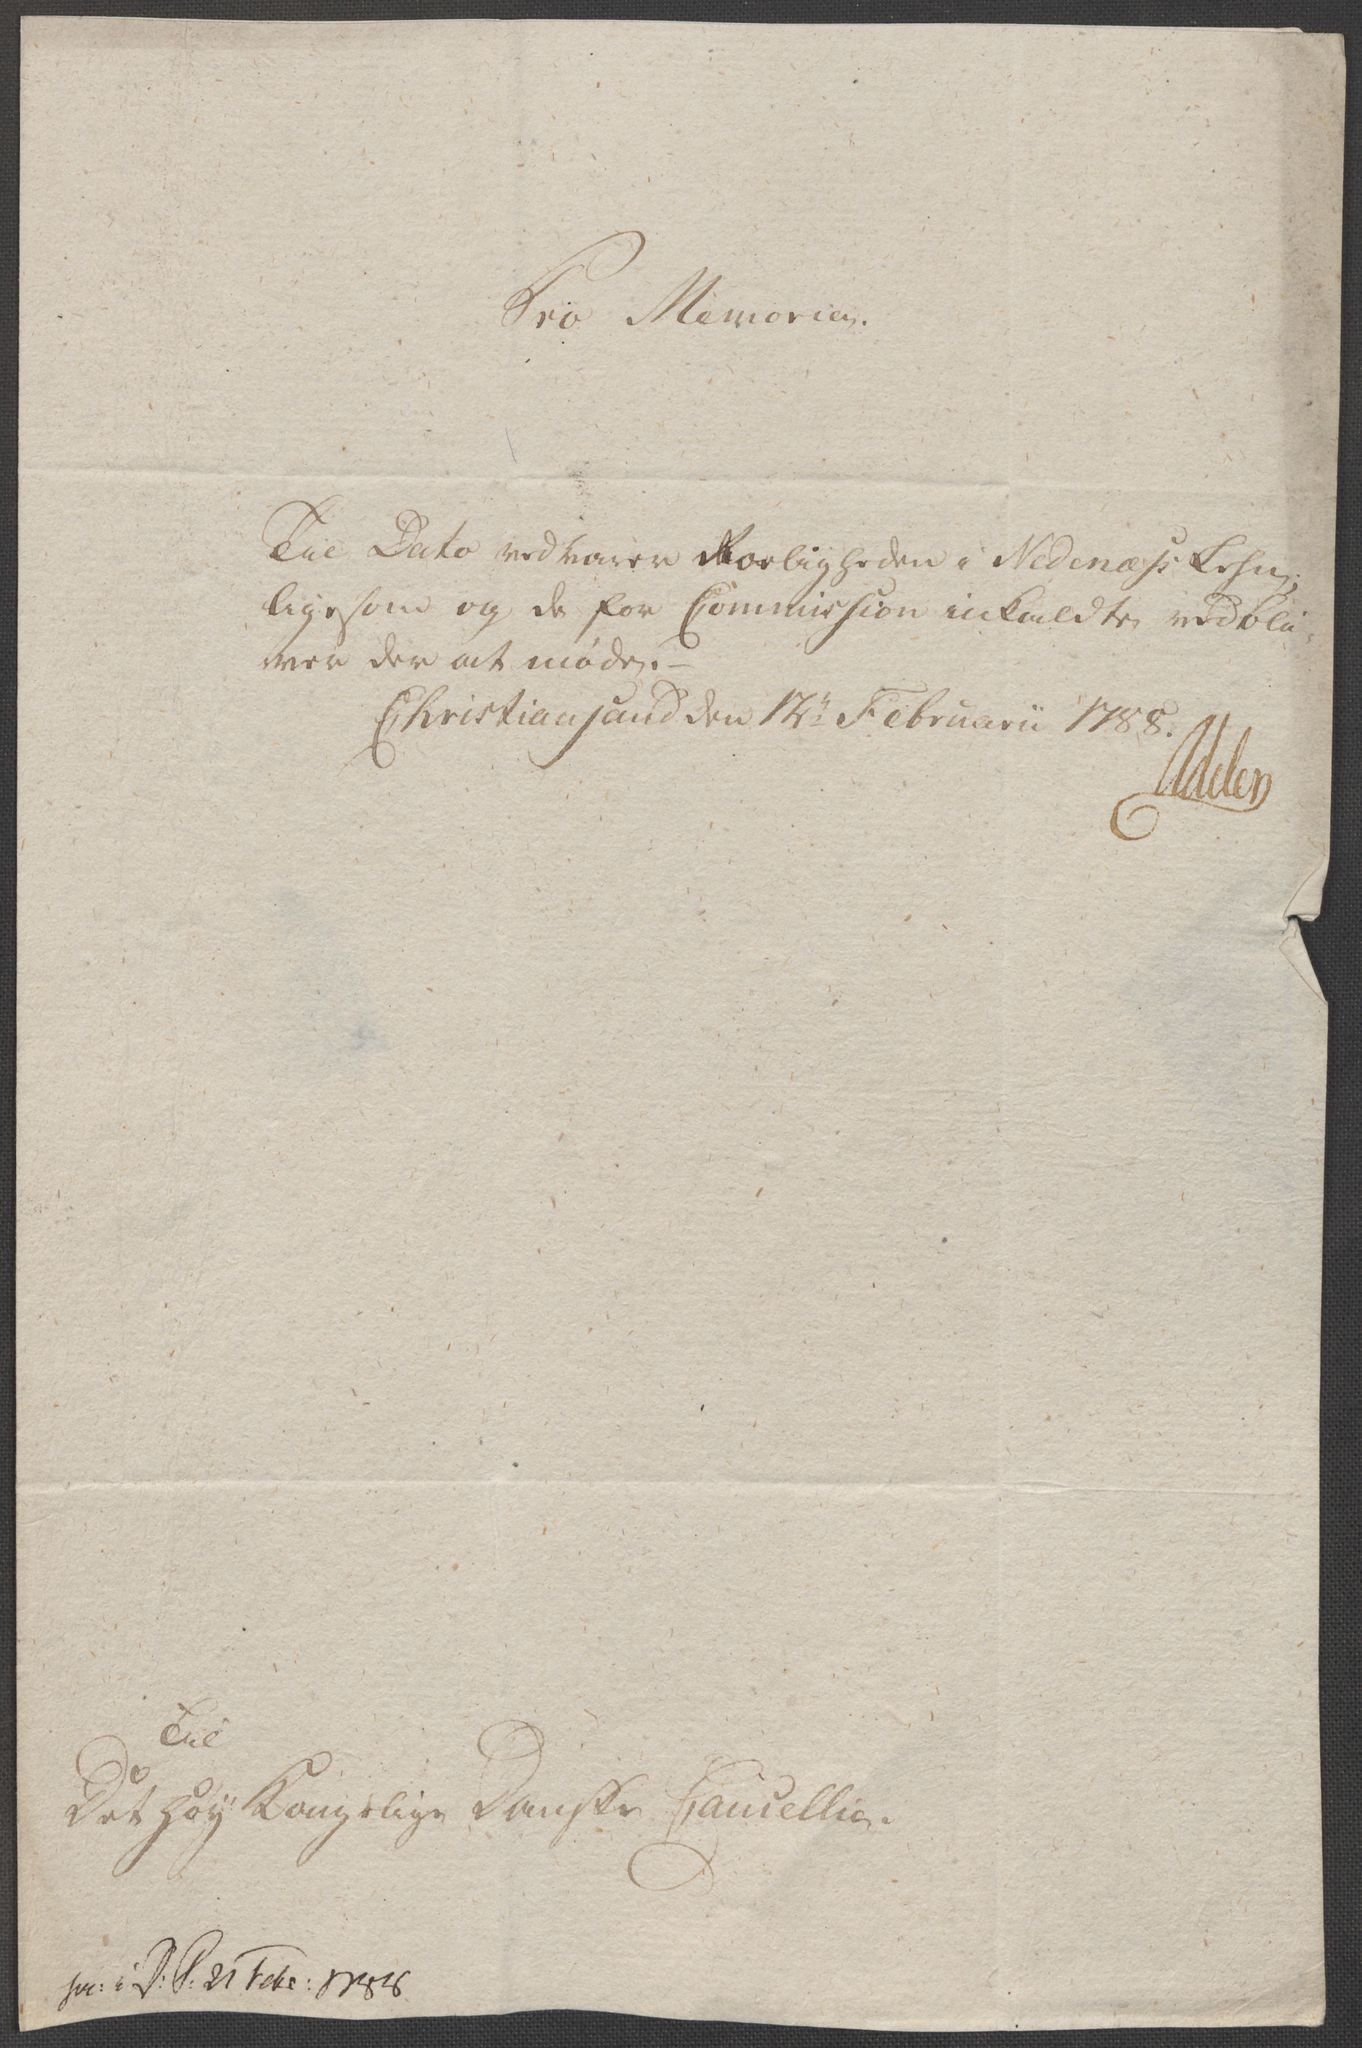 Pro Memoria.
Til Dato vedvarer Roeligheden i Nedenæss Lehn,
ligesom og de for Commission inkaldte vedbli,
ver der at møde.—
Christiansand den 12te Februarii 1788.
Adeler
Til
Det høy Kongelige Danske Cancellie.
i D: P: 21 Febr: 1788